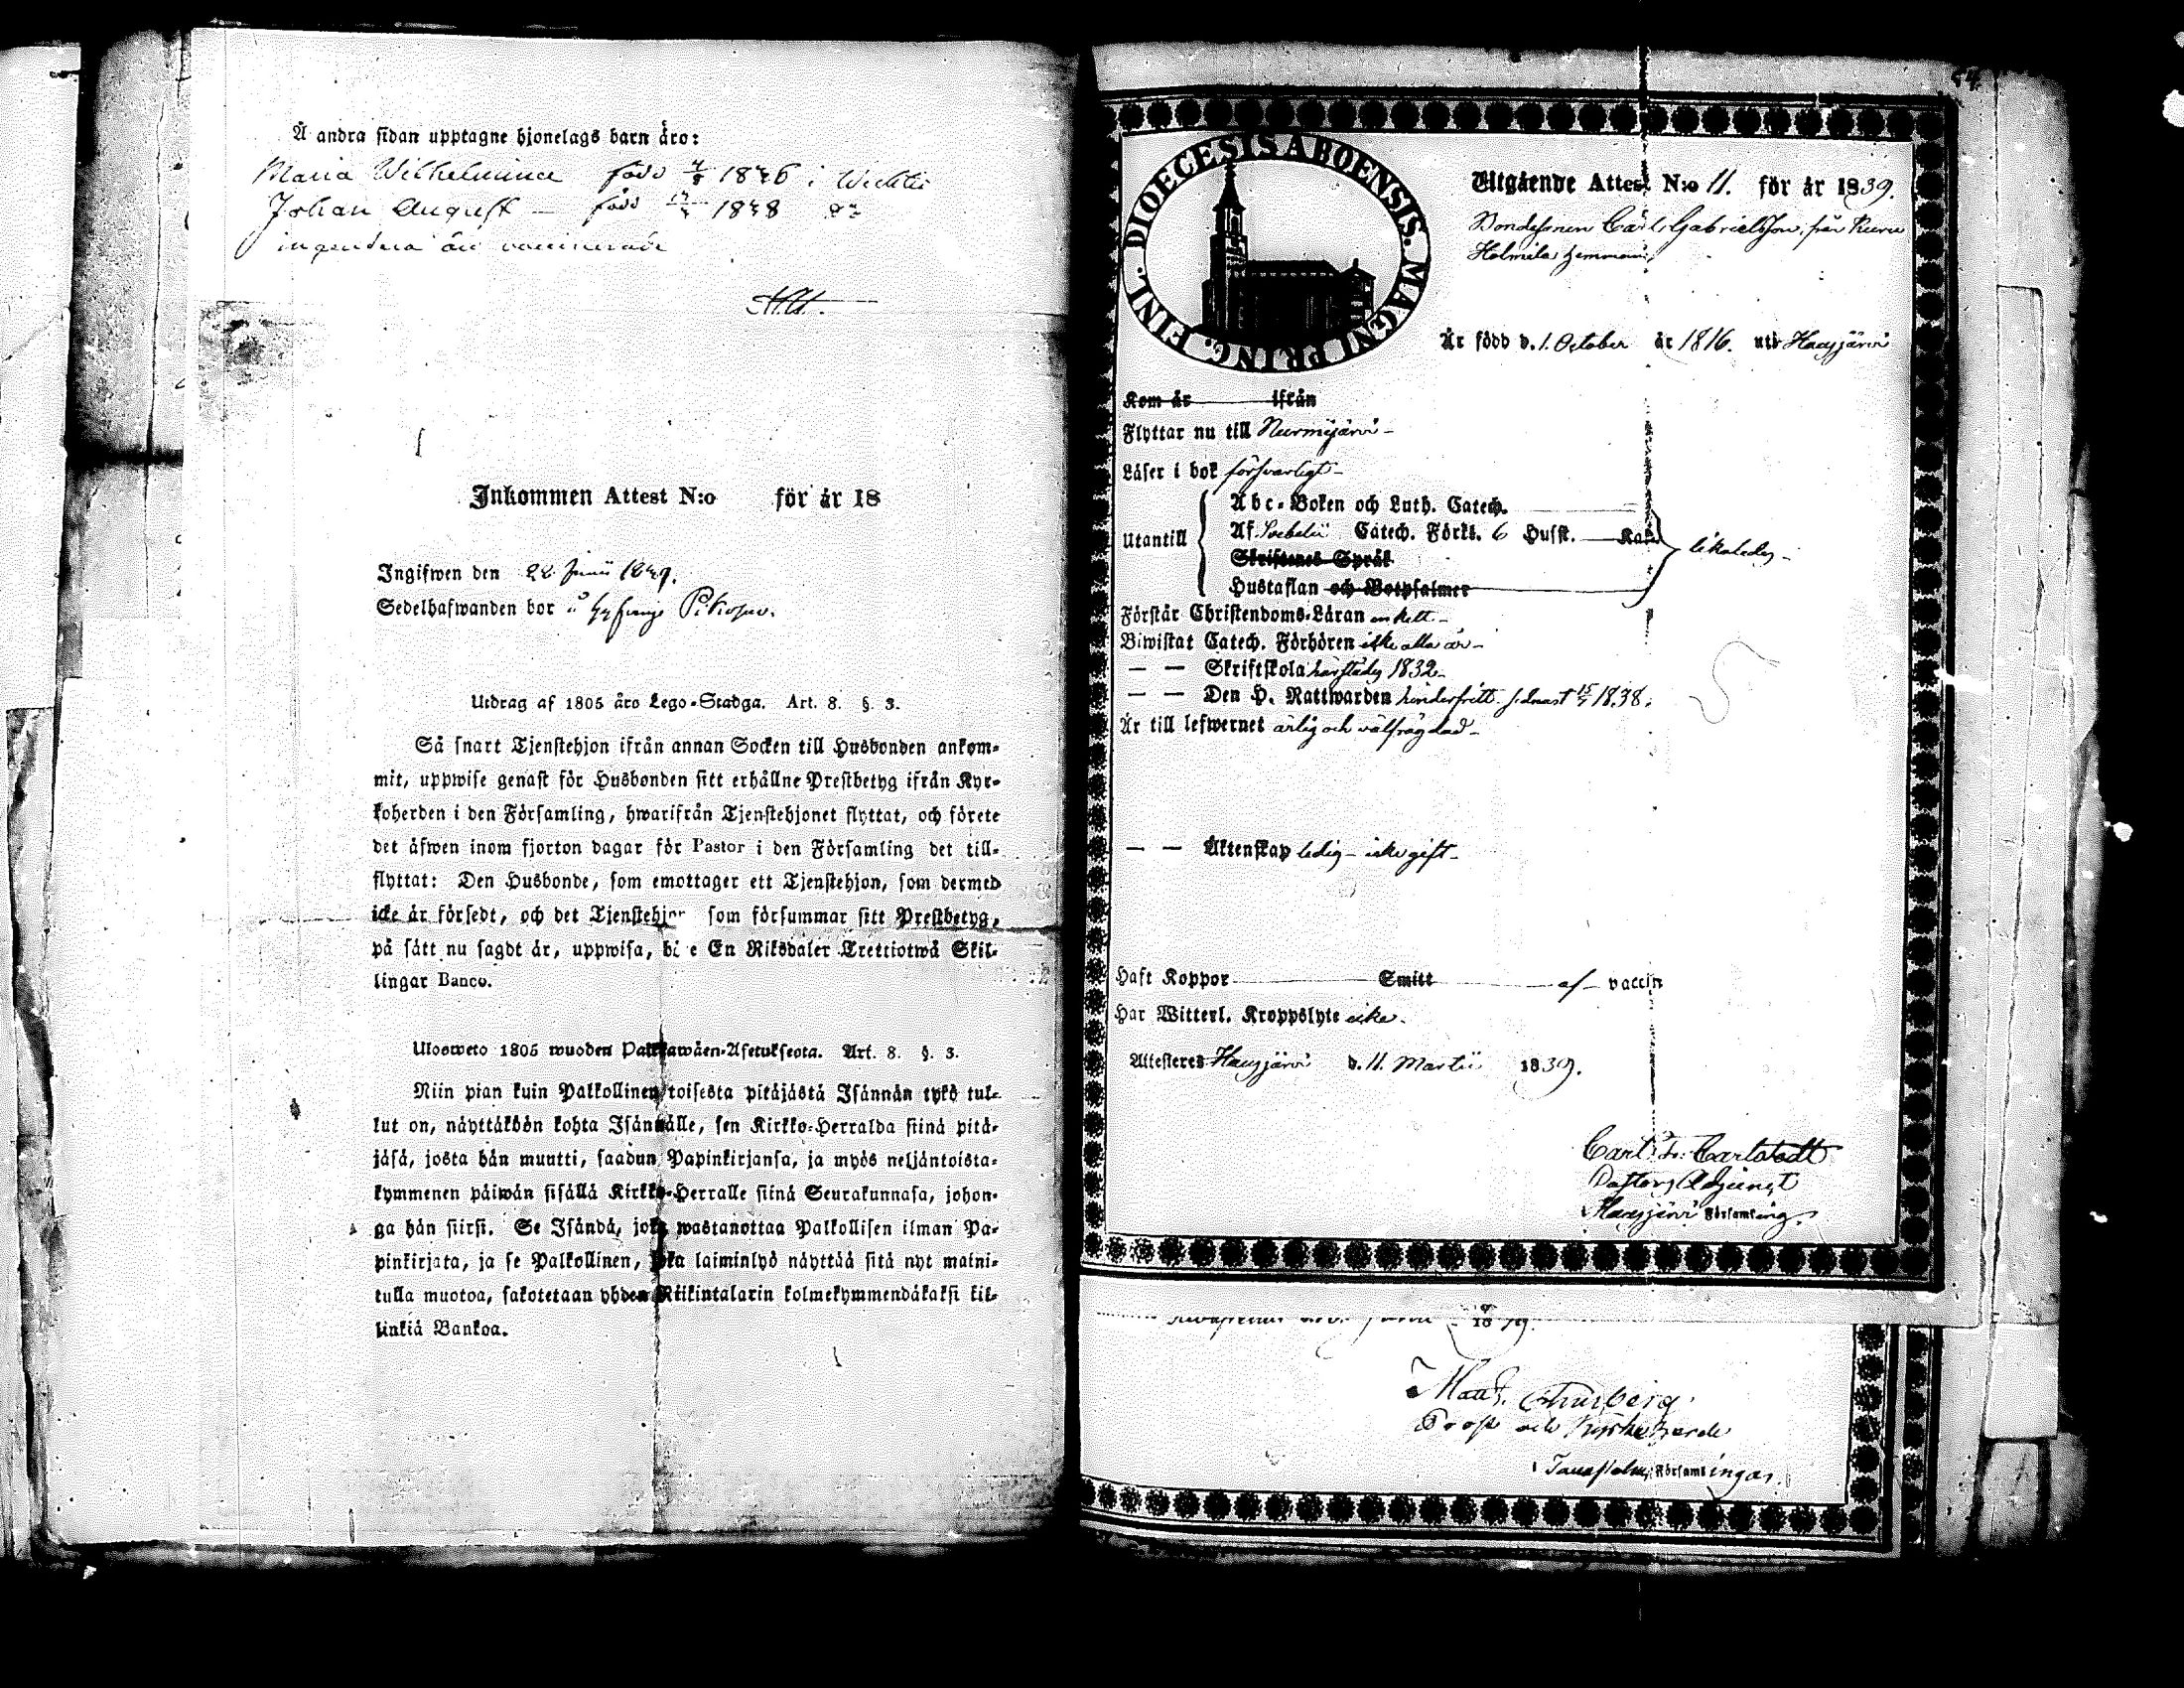 Å andra sidan upptagne hjonelags barn äro:
Maria Wilhelmina född 1846 i Wichtis
Johan August — född 1848 d:o
ingendera äro vaccinerade
Inkommen Attest N:o för år 18
Ingifwen den 22 Junii 1849.
Sedelhafwanden bor å
Utdrag af 1805 års Lego-Stadga. Art. 8. §. 3.
Så snart Tjenstehjon ifrån annan Socken till Husbonden ankom-
mit, uppwise genast för Husbonden sitt erhållne Prestbetyg ifrån Kyr-
koherden i den Församling, hwarifrån Tjenstehjonet flyttat, och förete
det äfwen inom fjorton dagar för Pastor i den Församling det till-
flyttat: Den Husbonde, som emottager ett Tjenstehjon, som dermed
icke är försedt, och det Tjenstehjon som försummar sitt Prestbetyg,
på sätt nu sagdt är, uppwisa, böte En Riksdaler Trettiotwå Skil-
lingar Banco.
Ulosweto 1805 wuoden Palkkawäen-Asetuksesta. Art. 8. §. 3.
Niin pian kuin Palkollinen toisesta pitäjästä Isännän tykö tul-
lut on, näyttäköön kohta Isännälle, sen Kirkko-Herralda siinä pitä-
jäsä, josta hän muutti, saadun Papinkirjansa, ja myös neljäntoista-
kymmenen päiwän sisällä Kirkko-Herralle siinä Seurakunnasa, johon-
ga hän siirsi. Se Isändä, joka wastanottaa Palkollisen ilman Pa-
pinkirjata, ja se Palkollinen, joka laiminlyö näyttää sitä nyt maini-
tulla muotoa, sakotetaan yhden Riikintalarin kolmekymmendäkaksi kil-
linkiä Bankoa.
54.
DIOECESIS ABOENSIS. MAGNI PRINC. FINL.
Utgående Attest N:o 11. för år 1839.
Bondesonen Carl Gabrielsson, från Kuru
Holmila hemman,
Är född d. 1. October år 1816. uti Hausjärvi
Kom år ifrån
Flyttar nu till Nurmijärvi -
Läser i bok försvarligt -
Utantill
Abc-Boken och Luth. Catech.
Af Svebelii Catech. Förkl. 6 Husst. Kat. likaledes -
Skriftenes Språk
Hustaflan och Botpsalmer
Förstår Christendoms-Läran enkelt -
Biwistat Catech. Förhören icke alla år -
— — Skriftskola härstädes 1832 -
— — Den H. Nattwarden hinderfritt sednast 15/7 1838.
Är till lefwernet ärlig och välfrägdad -
— — Äktenskap ledig - icke gift -
Haft Koppor Smitt af vaccin
Har Witterl. Kroppslyte icke.
Attesteres Hausjärvi d. 11. Martii 1839.
Carl Fr. Carlstedt
Pastors Adjunct
Hausjärvi Församling.
1849.
Thurberg
Prost och Kyrkoherde
Församlingar